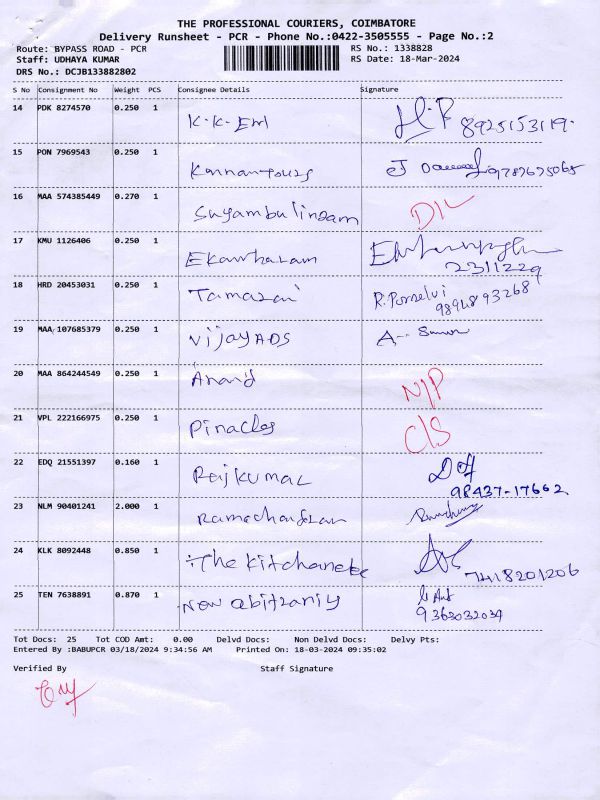 THE PROFESSIONAL COURIERS, COIMBATORE
Delivery Runsheet - PCR - Phone No.:0422-3505555 - Page No.:2
Route: BYPASS ROAD - PCR RS No.: 1338828
Staff: UDHAYA KUMAR RS Date: 18-Mar-2024
DRS No.: DCJB133882802
S No Consignment No Weight PCS Consignee Details Signature
14 PDK 8274570 0.250 1 K.K-Eml 8925153119.
15 PON 7969543 0.250 1 Kannan-tours 9787675065
16 MAA 574385449 0.270 1 Suyambulingam D/L
17 KMU 1126406 0.250 1 Ekambaram
2311229
18 HRD 20453031 0.250 1 Tamarai R. Ponselvi
9894893268
19 MAA 107685379 0.250 1 Vijay ADS
20 MAA 864244549 0.250 1 Anand N/P
21 VPL 222166975 0.250 1 Pinacles C/S
22 EDQ 21551397 0.160 1 Rajkumar
98437-17662
23 NLM 90401241 2.000 1 Ramachandran
24 KLK 8092448 0.850 1 The Kitchanete
7418201206
25 TEN 7638891 0.870 1 New
9363032034
Tot Docs: 25 Tot COD Amt: 0.00 Delvd Docs: Non Delvd Docs: Delvy Pts:
Entered By :BABUPCR 03/18/2024 9:34:56 AM Printed On: 18-03-2024 09:35:02
Verified By Staff Signature